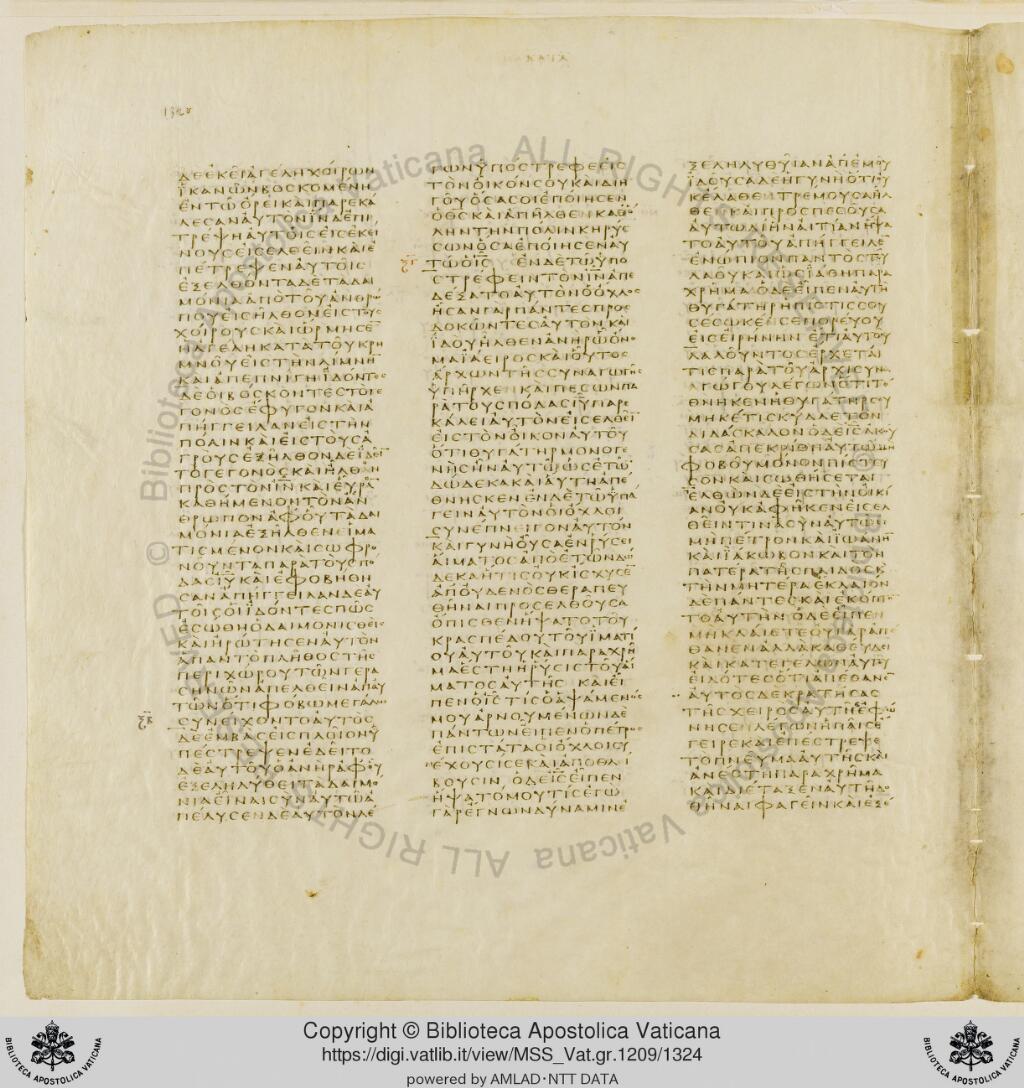 1324
ΔΕΕΚΕΙΑΓΕΛΗΧΟΙΡΩΝ
ΙΚΑΝΩΝΒΟΣΚΟΜΕΝΗ
ΕΝΤΩΟΡΕΙΚΑΙΠΑΡΕΚΑ
ΛΕΣΑΝΑΥΤΟΝΙΝΑΕΠΙ
ΤΡΕΨΗΑΥΤΟΙΣΕΙΣΕΚΕΙ
ΝΟΥΣΕΙΣΕΛΘΕΙΝΚΑΙΕ
ΠΕΤΡΕΨΕΝΑΥΤΟΙΣ
ΕΞΕΛΘΟΝΤΑΔΕΤΑΔΑΙ
ΜΟΝΙΑΑΠΟΤΟΥΑΝΘΡΩ
ΠΟΥΕΙΣΗΛΘΟΝΕΙΣΤΟΥΣ
ΧΟΙΡΟΥΣΚΑΙΩΡΜΗΣΕ
ΗΑΓΕΛΗΚΑΤΑΤΟΥΚΡΗ
ΜΝΟΥΕΙΣΤΗΝΛΙΜΝΗ
ΚΑΙΑΠΕΠΝΙΓΗΙΔΟΝΤΕΣ
ΔΕΟΙΒΟΣΚΟΝΤΕΣΤΟΓΕ
ΓΟΝΟΣΕΦΥΓΟΝΚΑΙΑ
ΠΗΓΓΕΙΛΑΝΕΙΣΤΗΝ
ΠΟΛΙΝΚΑΙΕΙΣΤΟΥΣΑ
ΓΡΟΥΣΕΞΗΛΘΟΝΔΕΙΔΕΙ
ΤΟΓΕΓΟΝΟΣΚΑΙΗΛΘΑΝ
ΠΡΟΣΤΟΝΙΝΚΑΙΕΥΡΑ
ΚΑΘΗΜΕΝΟΝΤΟΝΑΝ
ΘΡΩΠΟΝΑΦΟΥΤΑΔΑΙ
ΜΟΝΙΑΕΞΗΛΘΕΝΕΙΜΑ
ΤΙΣΜΕΝΟΝΚΑΙΣΩΦΡΟ
ΝΟΥΝΤΑΠΑΡΑΤΟΥΣΠΟ
ΔΑΣΙΥΚΑΙΕΦΟΒΗΘΗ
ΣΑΝΑΠΗΓΓΕΙΛΑΝΔΕΑΥ
ΤΟΙΣΟΙΙΔΟΝΤΕΣΠΩΣ
ΕΣΩΘΗΟΔΑΙΜΟΝΙΣΘΕΙΣ
ΚΑΙΗΡΩΤΗΣΕΝΑΥΤΟΝ
ΑΠΑΝΤΟΠΛΗΘΟΣΤΗΣ
ΠΕΡΙΧΩΡΟΥΤΩΝΓΕΡΑ
ΣΗΝΩΝΑΠΕΛΘΕΙΝΑΠΑΥ
ΤΩΝΟΤΙΦΟΒΩΜΕΓΑΛΩ
ΣΥΝΕΙΧΟΝΤΟΑΥΤΟΣ
ΔΕΕΜΒΑΣΕΙΣΠΛΟΙΟΝΥ
ΠΕΣΤΡΕΨΕΝΕΔΕΙΤΟ
ΔΕΑΥΤΟΥΟΑΝΗΡΑΦΟΥ
ΕΞΕΛΗΛΥΘΕΙΤΑΔΑΙΜΟ
ΝΙΑΕΙΝΑΙΣΥΝΑΥΤΩΑ
ΠΕΛΥΣΕΝΔΕΑΥΤΟΝΛΕ
ΓΩΝΥΠΟΣΤΡΕΦΕΕΙΣ
ΤΟΝΟΙΚΟΝΣΟΥΚΑΙΔΙΗ
ΓΟΥΟΣΑΣΟΙΕΠΟΙΗΣΕΝ
ΟΘΣΚΑΙΑΠΗΛΘΕΝΚΑΘΟ
ΛΗΝΤΗΝΠΟΛΙΝΚΗΡΥΣ
ΣΩΝΟΣΑΕΠΟΙΗΣΕΝΑΥ
ΤΩΟΙΣ ΕΝΔΕΤΩΥΠΟ
ΣΤΡΕΦΕΙΝΤΟΝΙΝΑΠΕ
ΔΕΞΑΤΟΑΥΤΟΝΟΟΧΛΟΣ
ΗΣΑΝΓΑΡΠΑΝΤΕΣΠΡΟΣ
ΔΟΚΩΝΤΕΣΑΥΤΟΝΚΑΙ
ΙΔΟΥΗΛΘΕΝΑΝΗΡΩΟΝΟ
ΜΑΙΑΕΙΡΟΣΚΑΙΟΥΤΟΣ
ΑΡΧΩΝΤΗΣΣΥΝΑΓΩΓΗΣ
ΥΠΗΡΧΕΝΚΑΙΠΕΣΩΝΠΑ
ΡΑΤΟΥΣΠΟΔΑΣΙΥΠΑΡΕ
ΚΑΛΕΙΑΥΤΟΝΕΙΣΕΛΘΕΙ
ΕΙΣΤΟΝΟΙΚΟΝΑΥΤΟΥ
ΟΤΙΘΥΓΑΤΗΡΜΟΝΟΓΕ
ΝΗΣΗΝΑΥΤΩΩΣΕΤΩ
ΔΩΔΕΚΑΚΑΙΑΥΤΗΑΠΕ
ΘΝΗΣΚΕΝΕΝΔΕΤΩΥΠΑ
ΓΕΙΝΑΥΤΟΝΟΙΟΧΛΟΙ
ΣΥΝΕΠΝΕΙΓΟΝΑΥΤΟΝ
ΚΑΙΓΥΝΗΟΥΣΑΕΝΡΥΣΕΙ
ΑΙΜΑΤΟΣΑΠΟΕΤΩΝΔΩ
ΔΕΚΑΗΤΙΣΟΥΚΙΣΧΥΣΕ
ΑΠΟΥΔΕΝΟΣΘΕΡΑΠΕΥ
ΘΗΝΑΙΠΡΟΣΕΛΘΟΥΣΑ
ΟΠΙΣΘΕΝΗΨΑΤΟΤΟΥ
ΚΡΑΣΠΕΔΟΥΤΟΥΙΜΑΤΙ
ΟΥΑΥΤΟΥΚΑΙΠΑΡΑΧΡΗ
ΜΑΕΣΤΗΗΡΥΣΙΣΤΟΥΑΙ
ΜΑΤΟΣΑΥΤΗΣ ΚΑΙΕΙ
ΠΕΝΟΙΣΤΙΣΟΑΨΑΜΕΝΟΣ
ΜΟΥΑΡΝΟΥΜΕΝΩΝΔΕ
ΠΑΝΤΩΝΕΙΠΕΝΟΠΕΤΡΟΣ
ΕΠΙΣΤΑΤΑΟΙΟΧΛΟΙΣΥ
ΕΧΟΥΣΙΣΕΚΑΙΑΠΟΘΛΙ
ΒΟΥΣΙΝ ΟΔΕΙΣΕΙΠΕΝ
ΗΨΑΤΟΜΟΥΤΙΣΕΓΩ
ΓΑΡΕΓΝΩΝΔΥΝΑΜΙΝΕ
ΞΕΛΗΛΥΘΥΙΑΝΑΠΕΜΟΥ
ΙΔΟΥΣΑΔΕΗΓΥΝΗΟΤΙΟΥ
ΚΕΛΑΘΕΝΤΡΕΜΟΥΣΑΗΛ
ΘΕΝΚΑΙΠΡΟΣΠΕΣΟΥΣΑ
ΑΥΤΩΔΙΗΝΑΙΤΙΑΝΗΨΑ
ΤΟΑΥΤΟΥΑΠΗΓΓΕΙΛΕ
ΕΝΩΠΙΟΝΠΑΝΤΟΣΤΟΥ
ΛΑΟΥΚΑΙΩΣΙΑΘΗΠΑΡΑ
ΧΡΗΜΑΟΔΕΕΙΠΕΝΑΥΤΗ
ΘΥΓΑΤΗΡΗΠΙΣΤΙΣΣΟΥ
ΣΕΣΩΚΕΝΣΕΠΟΡΕΥΟΥ
ΕΙΣΕΙΡΗΝΗΝΕΤΙΑΥΤΟΥ
ΛΑΛΟΥΝΤΟΣΕΡΧΕΤΑΙ
ΤΙΣΠΑΡΑΤΟΥΑΡΧΙΣΥΝΑ
ΓΩΓΟΥΛΕΓΩΝΟΤΙΤΕ
ΘΝΗΚΕΝΗΘΥΓΑΤΗΡΣΟΥ
ΜΗΚΕΤΙΣΚΥΛΛΕΤΟΝ
ΔΙΔΑΣΚΑΛΟΝΟΔΕΙΣΑΚΟΥ
ΣΑΣΑΠΕΚΡΙΘΗΑΥΤΩΜΗ
ΦΟΒΟΥΜΟΝΟΝΠΙΣΤΕΥ
ΣΟΝΚΑΙΣΩΘΗΣΕΤΑΙ
ΕΛΘΩΝΔΕΕΙΣΤΗΝΟΙΚΙ
ΑΝΟΥΚΑΦΗΚΕΝΕΙΣΕΛ
ΘΕΙΝΤΙΝΑΣΥΝΑΥΤΩΕΙ
ΜΗΠΕΤΡΟΝΚΑΙΙΩΑΝΗ
ΚΑΙΙΑΚΩΒΟΝΚΑΙΤΟΝ
ΠΑΤΕΡΑΤΗΣΠΑΙΔΟΣΚ
ΤΗΝΜΗΤΕΡΑΕΚΛΑΙΟΝ
ΔΕΠΑΝΤΕΣΚΑΙΕΚΟΠΤΟ
ΤΟΑΥΤΗΝΟΔΕΕΙΠΕΝ
ΜΗΚΛΑΙΕΤΕΟΥΓΑΡΑΠΕ
ΘΑΝΕΝΑΛΛΑΚΑΘΕΥΔΕΙ
ΚΑΙΚΑΤΕΓΕΛΩΝΑΥΤΟΥ
ΕΙΔΟΤΕΣΟΤΙΑΠΕΘΑΝΕ
ΑΥΤΟΣΔΕΚΡΑΤΗΣΑΣ
ΤΗΣΧΕΙΡΟΣΑΥΤΗΣΕΦΩ
ΝΗΣΕΝΛΕΓΩΝΗΠΑΙΣΕ
ΓΕΙΡΕΚΑΙΕΠΕΣΤΡΕΨΕ
ΤΟΠΝΕΥΜΑΑΥΤΗΣΚΑΙ
ΑΝΕΣΤΗΠΑΡΑΧΡΗΜΑ
ΚΑΙΔΙΕΤΑΞΕΝΑΥΤΗΔΟ
ΘΗΝΑΙΦΑΓΕΙΝΚΑΙΕΞΕ
Copyright © Biblioteca Apostolica Vaticana
https://digi.vatlib.it/view/MSS_Vat.gr.1209/1324
powered by AMLAD･NTT DATA
BIBLIOTECA APOSTOLICA VATICANA
BIBLIOTECA APOSTOLICA VATICANA